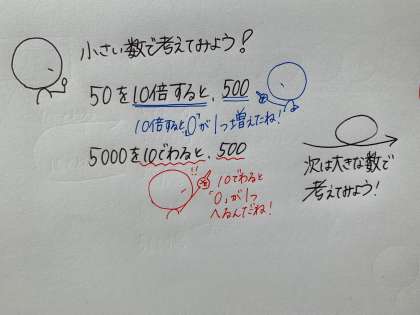 小さい数で考えてみよう!
50を10倍すると、500
10倍すると「0」が1つ増えたね!
5000を10でわると、500
10でわると
「0」が1つ
へるんだね!
次は大きな数で
考えてみよう!